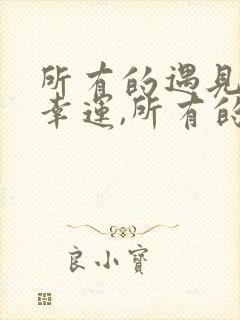 所有的遇见
幸运,所有的
良小寶